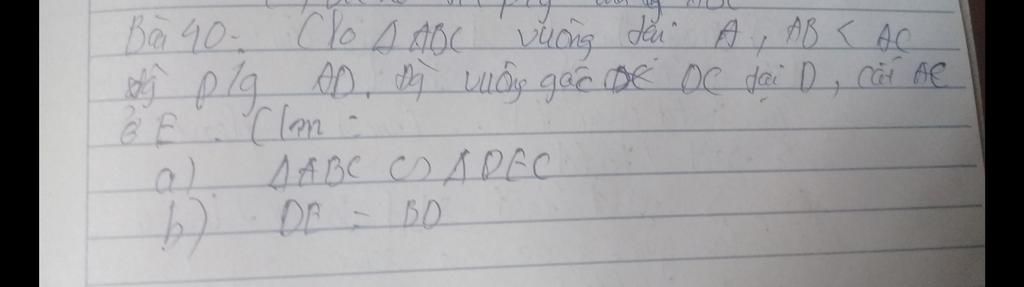 Bài 40. Cho Δ ABC vuông tại A, AB < AC
p/g AD. đg vuông góc DC tại D, cắt AC
ở E. C/m:
a). ΔABC ∽ ΔDEC
b) DE = BD